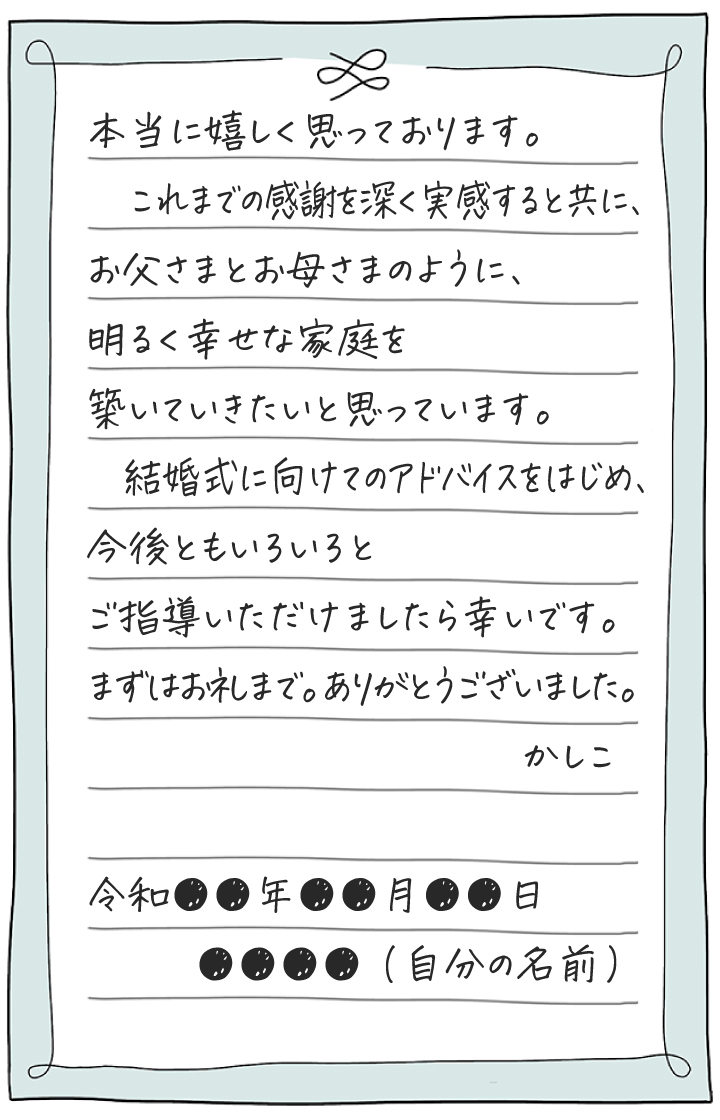 本当に嬉しく思っております。
これまでの感謝を深く実感すると共に、
お父さまとお母さまのように、
明るく幸せな家庭を
築いていきたいと思っています。
結婚式に向けてのアドバイスをはじめ、
今後ともいろいろと
ご指導いただけましたら幸いです。
まずはお礼まで。ありがとうございました。
かしこ
令和●●年●●月●●日
●●●●（自分の名前）